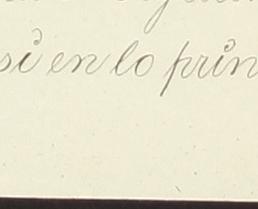 si en lo prin